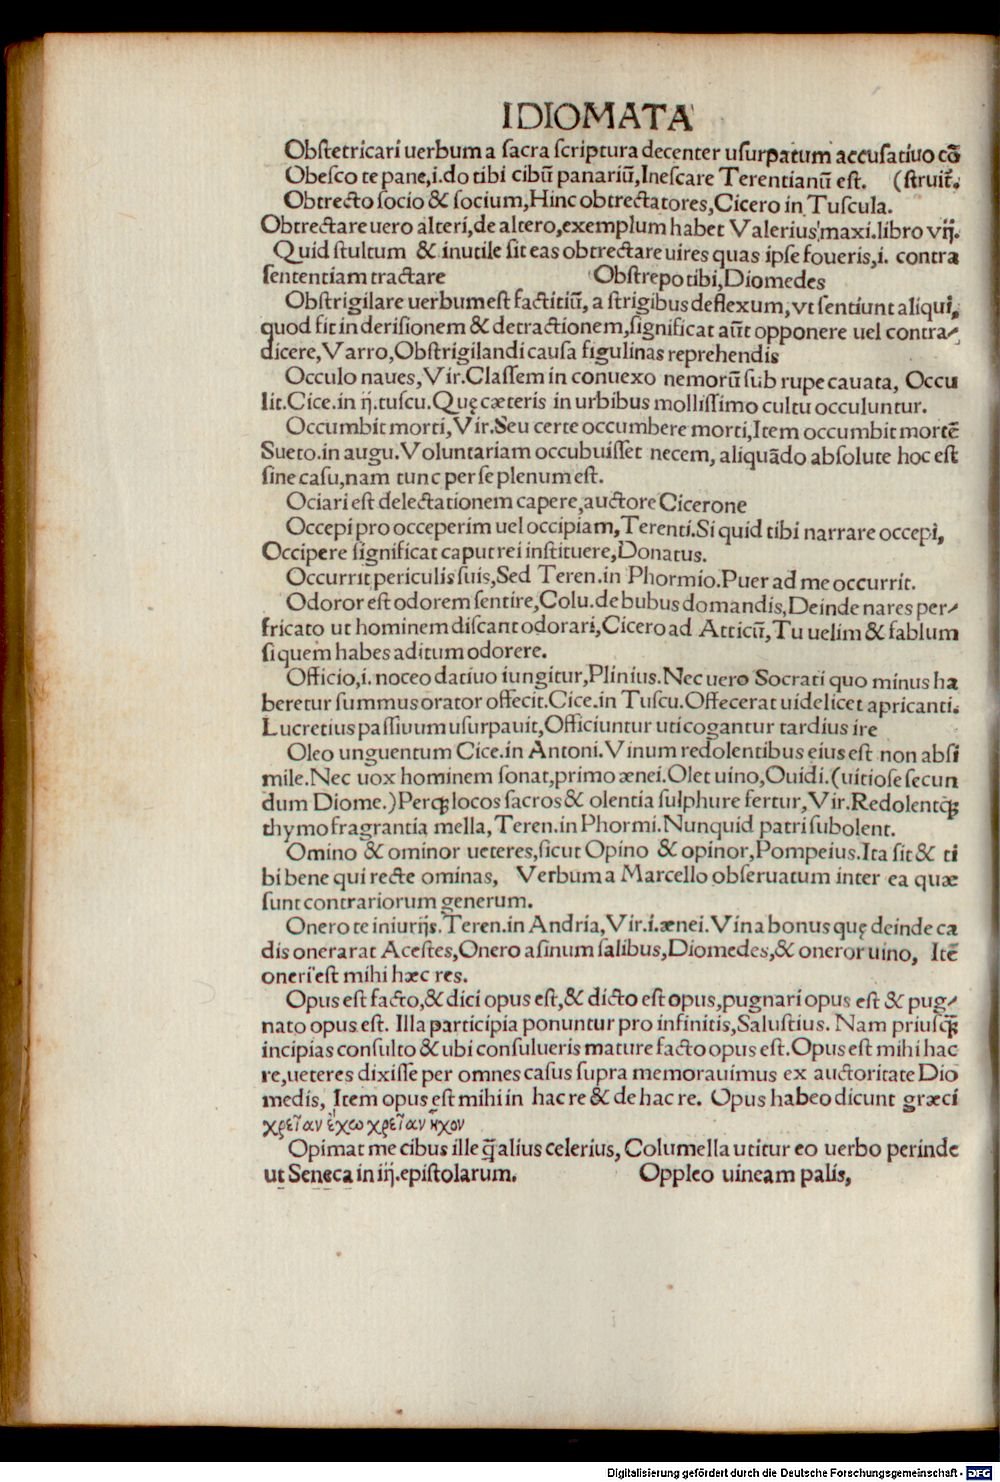 IDIOMATA
Obstetricari uerbum a sacra scriptura decenter usurpatum accusatiuo cō
Obesco te pane,i.do tibi cibū panariū,Inescare Terentianū est. (struit̄.
Obtrecto socio & socium,Hinc obtrectatores,Cicero in Tuscula.
Obtrectare uero alteri,de altero,exemplum habet Valerius maxi.libro vij.
Quid stultum & inutile sit eas obtrectare uires quas ipse foueris,i. contra
sententiam tractare Obstrepo tibi,Diomedes
Obstrigilare uerbum est factitiū, a strigibus deflexum, vt sentiunt aliqui,
quod fit in derisionem & detractionem,significat aūt opponere uel contra-
dicere,Varro,Obstrigilandi causa figulinas reprehendis
Occulo naues,Vir.Classem in conuexo nemorū sub rupe cauata, Occu
lit.Cice.in ij.tuscu.Quę cæteris in urbibus mollissimo cultu occuluntur.
Occumbit morti,Vir.Seu certe occumbere morti,Item occumbit mortē
Sueto.in augu.Voluntariam occubuisset necem, aliquādo absolute hoc est
sine casu,nam tunc per se plenum est.
Ociari est delectationem capere,auctore Cicerone
Occepi pro occeperim uel occipiam,Terenti.Si quid tibi narrare occepi,
Occipere significat caput rei instituere,Donatus.
Occurrit periculis suis,Sed Teren.in Phormio.Puer ad me occurrit.
Odoror est odorem sentire,Colu.de bubus domandis,Deinde nares per-
fricato ut hominem discant odorari,Cicero ad Atticū,Tu uelim & fablum
si quem habes aditum odorere.
Officio,i. noceo datiuo iungitur,Plinius.Nec uero Socrati quo minus ha
beretur summus orator offecit.Cice.in Tuscu.Offecerat uidelicet apricanti.
Lucretius passiuum usurpauit,Officiuntur uti cogantur tardius ire
Oleo unguentum Cice.in Antoni.Vinum redolentibus eius est non absi
mile.Nec uox hominem sonat,primo ænei.Olet uino,Ouidi.(uitiose secun
dum Diome.)Perq̃ locos sacros & olentia sulphure fertur,Vir.Redolentq̃
thymo fragrantia mella,Teren.in Phormi.Nunquid patri subolent.
Omino & ominor ueteres,sicut Opino & opinor,Pompeius.Ita sit & ti
bi bene qui recte ominas, Verbum a Marcello obseruatum inter ea quæ
sunt contrariorum generum.
Onero te iniurijs.Teren.in Andria,Vir.i.ænei.Vina bonus quę deinde ca
dis onerarat Acestes,Onero asinum salibus,Diomedes,& oneror uino, Itē
oneri est mihi hæc res.
Opus est facto,& dici opus est,& dicto est opus,pugnari opus est & pug-
nato opus est. Illa participia ponuntur pro infinitis,Salustius. Nam priusq̃
incipias consulto & ubi consulueris mature facto opus est.Opus est mihi hac
re,ueteres dixisse per omnes casus supra memorauimus ex auctoritate Dio
medis, Item opus est mihi in hac re & de hac re. Opus habeo dicunt græci
χρεῖαν ἔχω χρεῖαν ἦχον
Opimat me cibus ille q̃ alius celerius, Columella utitur eo uerbo perinde
ut Seneca in iij.epistolarum. Oppleo uineam palis,
Digitalisierung gefördert durch die Deutsche Forschungsgemeinschaft - DFG